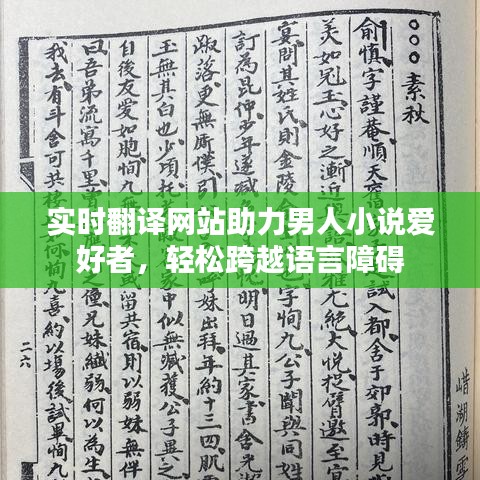 实时翻译网站助力男人小说爱
好者，轻松跨越语言障碍
○○○素秋
俞慎字謹菴順天舊試入都舍于郊郭時見
美如冠玉心好之漸近九絕大悅捉臂邀
宴問其姓氏則金陵字恂九公子聞與同姓
訂為昆仲少年遂減明日過其家書舍光
踧落更無廝僕引妹出拜年約十三四肌
玉無其白也少頃托中似無臧獲公子異之
自後友愛如胞恂九無留共宿則以弱妹無伴
曰吾弟流寓千里曾之僮兄妹纖弱何以為生
我去有斗舍可共恂九喜約以場後試畢恂九
二六
湖鑄雪